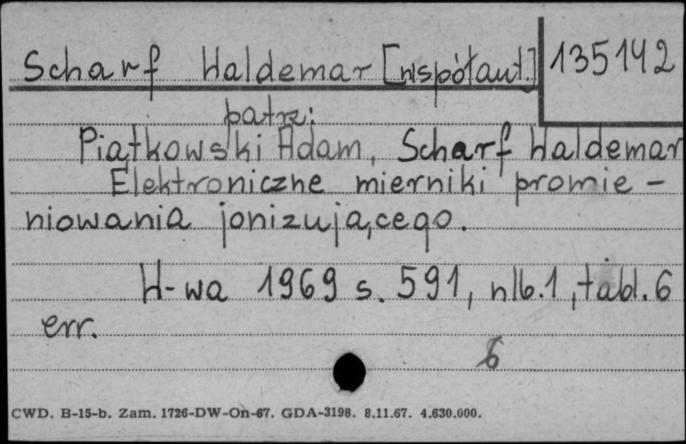 Scharf Waldemar [współaut.] 135142
patrz:
Piątkowski Adam, Scharf Waldemar
Elektroniczne mierniki promie-
niowania jonizującego.
W-wa 1969 s. 591, nlb.1, tabl. 6
err.
6
CWD. B-15-b. Zam. 1726-DW-On-67. GDA-3198. 8.11.67. 4.630.000.